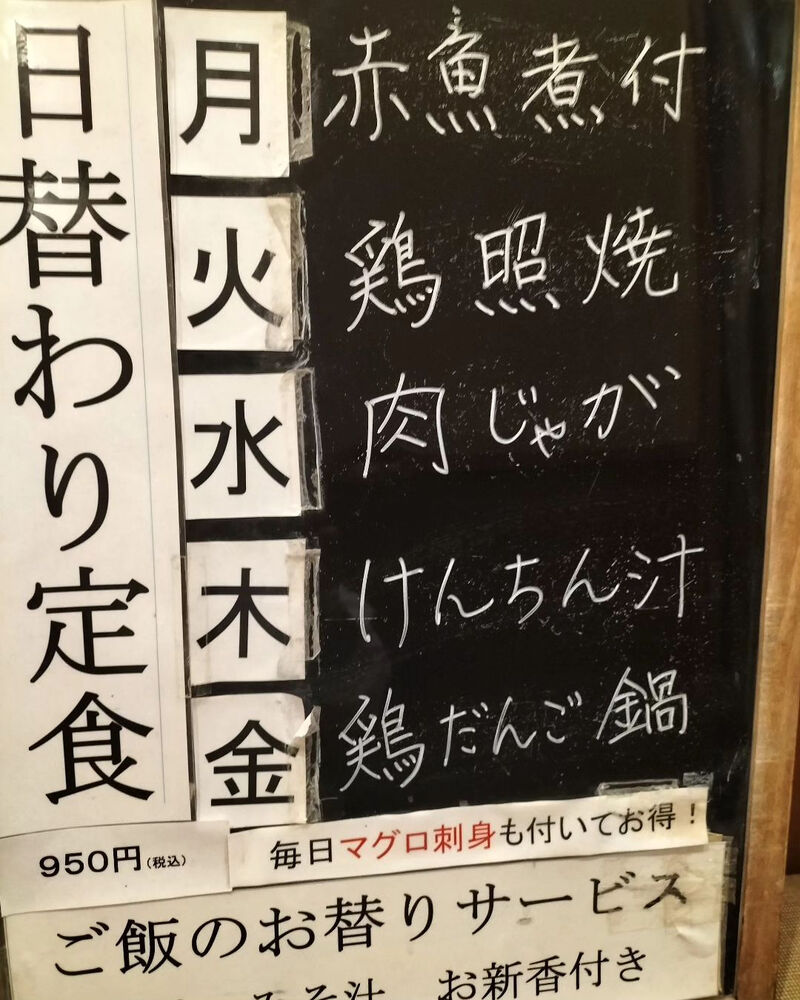 日替わり定食
月 赤魚煮付
火 鶏照焼
水 肉じゃが
木 けんちん汁
金 鶏だんご鍋
毎日マグロ刺身も付いてお得！
950円(税込)
ご飯のお替りサービス
みそ汁 お新香付き